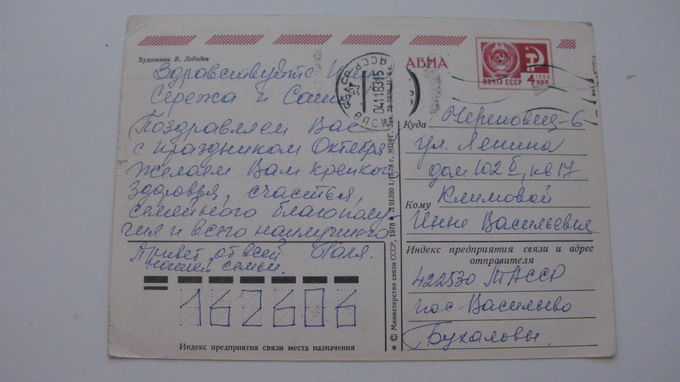 Художник В. Лебедев
Здравствуйте
Сережа и Саша
Поздравляем Вас
с праздником Октября
желаем Вам крепкого
здоровья, счастья,
семейного благополу
чия и всего наилучшего
Привет от всей Поля.
нашей семьи.
162606
Индекс предприятия связи места назначения
© Министерство связи СССР, 1978
АВИА
ПОЧТА СССР
4 КОП
041183
Куда Череповец-6
ул. Ленина
дом 102 кв 17
Кому Климовой
Инне Васильевне
Индекс предприятия связи и адрес
отправителя
422530 ТАССР
пос. Васильево
Бухаловы